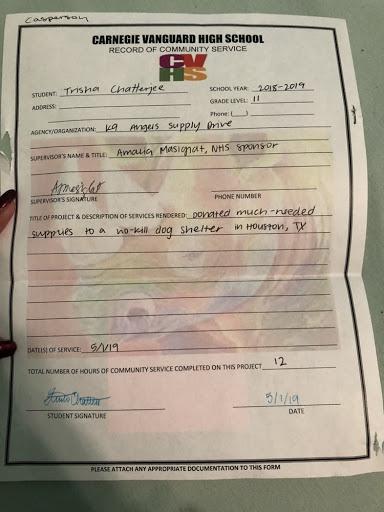 Casperson
CARNEGIE VANGUARD HIGH SCHOOL
RECORD OF COMMUNITY SERVICE
CV
HS
STUDENT: Trisha Chatterjee SCHOOL YEAR: 2018-2019
ADDRESS: GRADE LEVEL: 11
Phone: ( )
AGENCY/ORGANIZATION: K9 Angels Supply Drive
SUPERVISOR'S NAME & TITLE: Amalia Masignat, NHS sponsor
SUPERVISOR'S SIGNATURE PHONE NUMBER
TITLE OF PROJECT & DESCRIPTION OF SERVICES RENDERED: Donated much-needed
supplies to a no-kill dog shelter in Houston, TX
DATE(S) OF SERVICE: 5/1/19
TOTAL NUMBER OF HOURS OF COMMUNITY SERVICE COMPLETED ON THIS PROJECT 12
5/1/19
STUDENT SIGNATURE DATE
PLEASE ATTACH ANY APPROPRIATE DOCUMENTATION TO THIS FORM